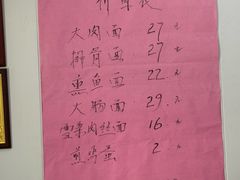 价目表
大肉面 27元
排骨面 27元
熏鱼面 22元
大肠面 29元
雪菜肉丝面 16元
煎鸡蛋 2元